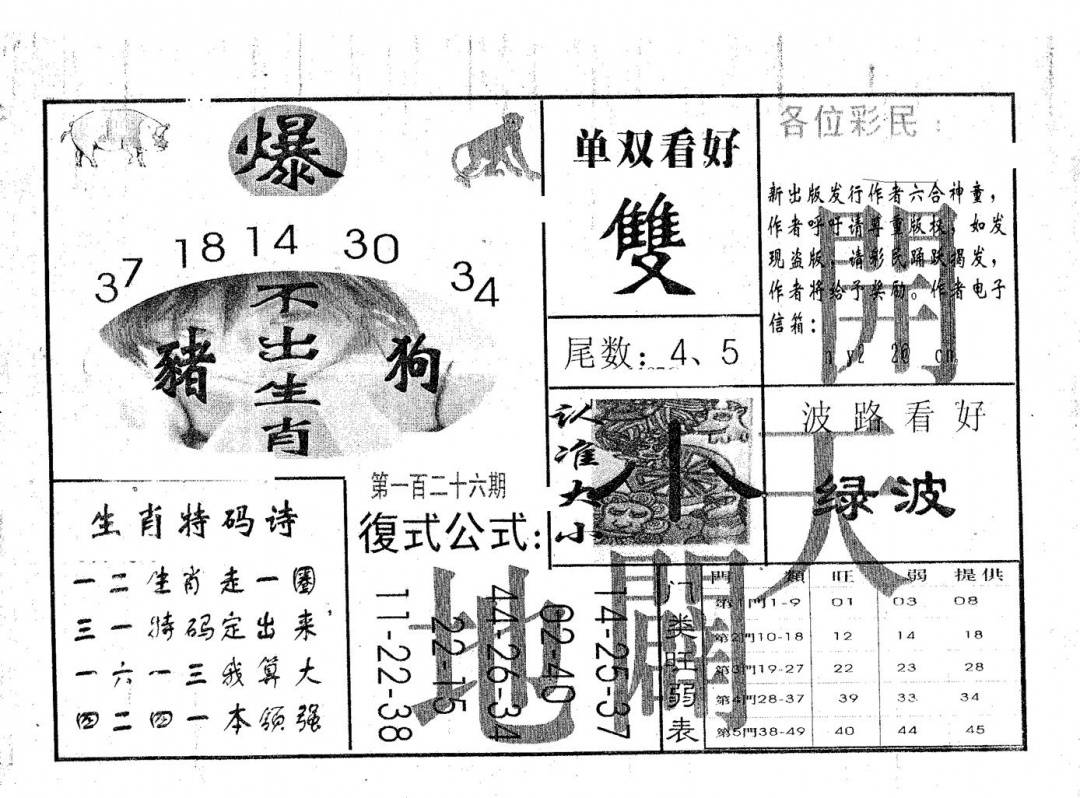 爆
37 18 14 30 34
不出生肖
豬
狗
单双看好
雙
尾数：4、5
各位彩民：
新出版发行作者六合神童，
作者呼吁请尊重版权，如发
现盗版，请彩民踊跃揭发，
作者将给予奖励。作者电子
信箱：
開
天
闢
地
认准大小
小
波路看好
绿波
生肖特码诗
一二生肖走一圈
三一特码定出来，
一六一三我算大
四二四一本领强
第一百二十六期
復式公式：
14-25-37
02-40
44-26-34
22-15
11-22-38
门类旺弱表
門類 旺 弱 提供
第1門1-9 01 03 08
第2門10-18 12 14 18
第3門19-27 22 23 28
第4門28-37 39 33 34
第5門38-49 40 44 45